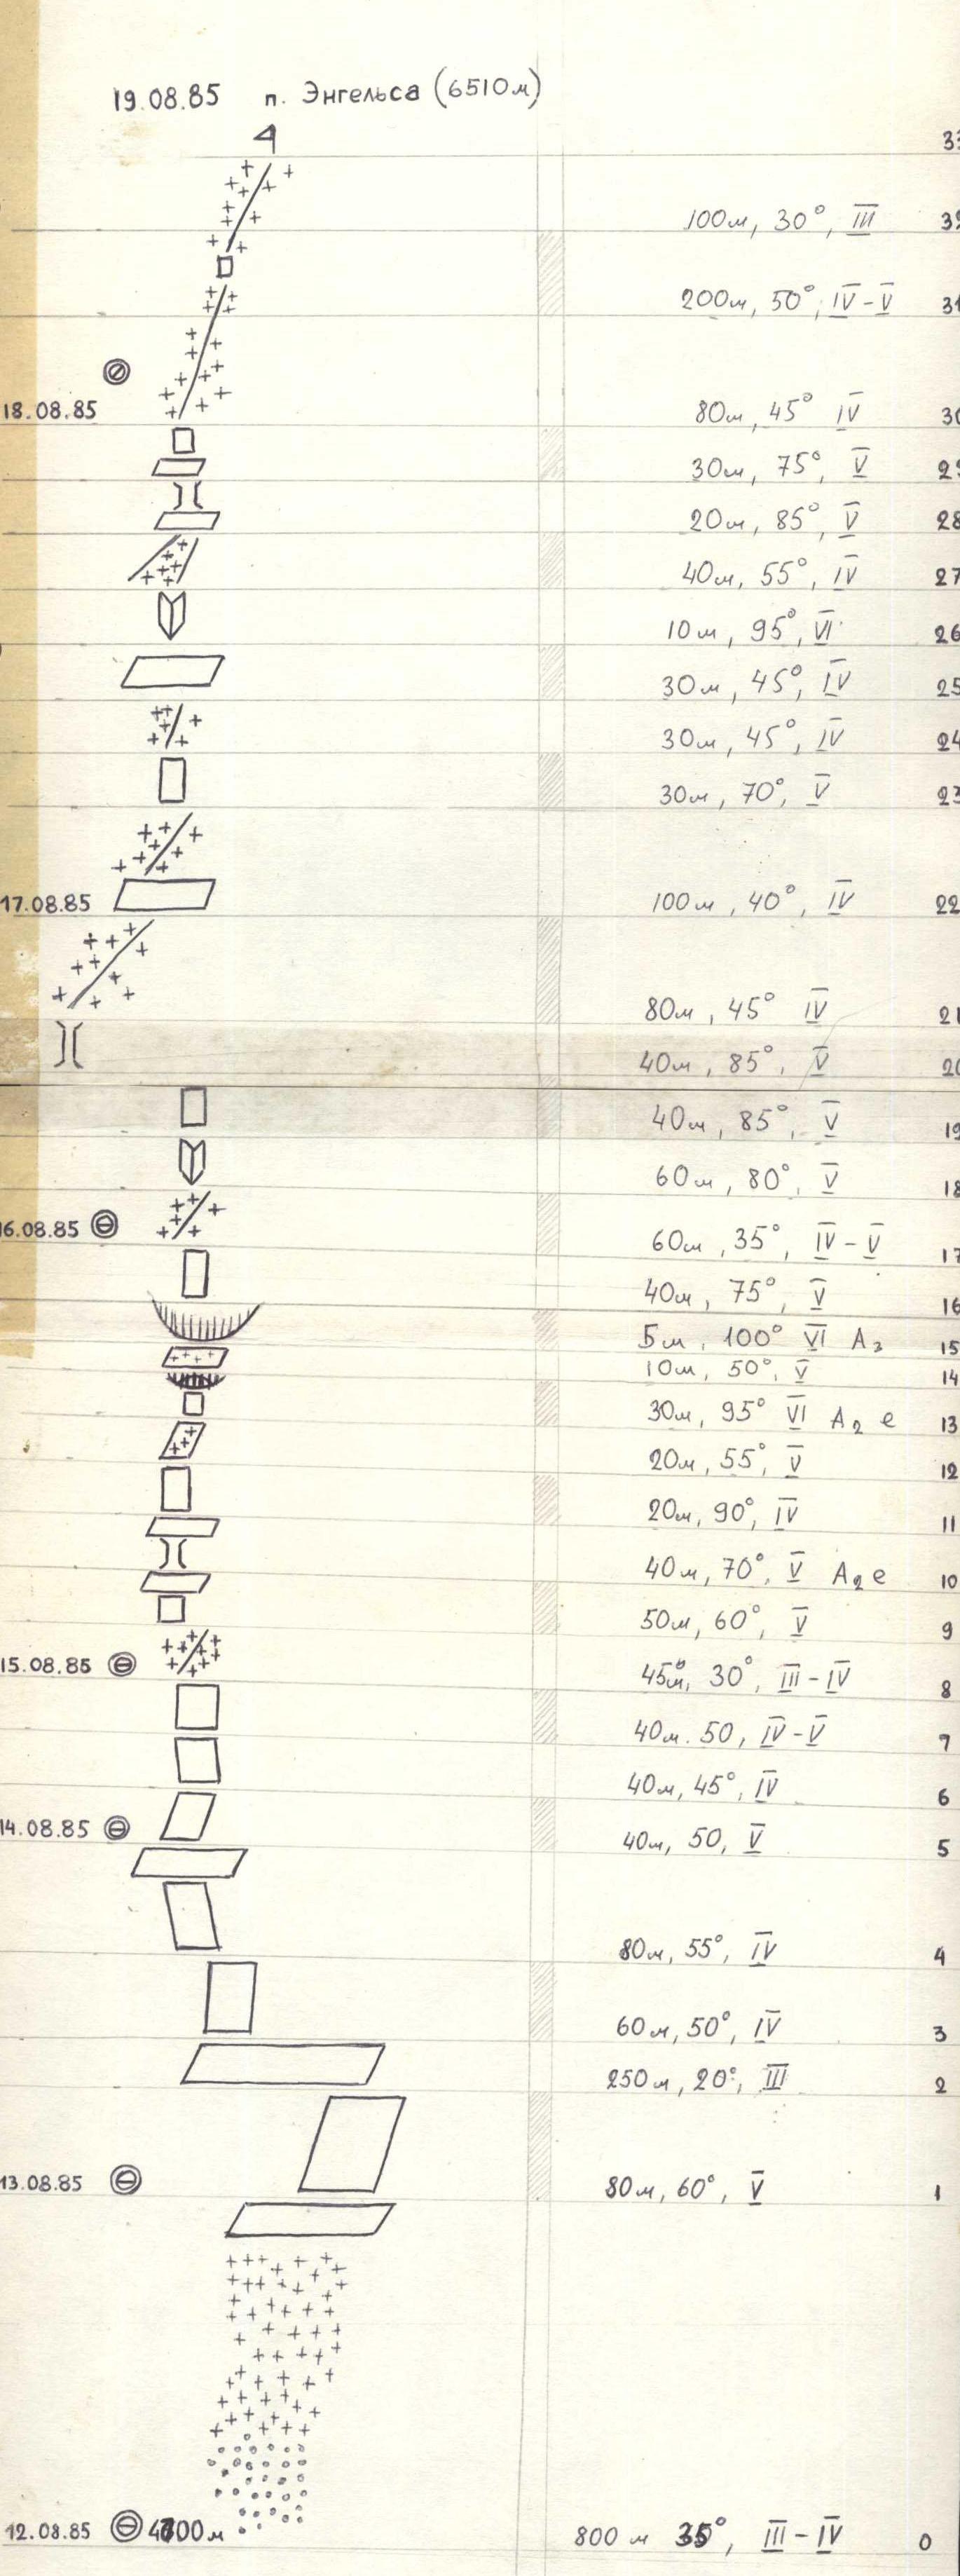 19.08.85 п. Энгельса (6510м)
33
100м, 30°, III 32
200м, 50°, IV-V 31
18.08.85 80м, 45° IV 30
30м, 75°, V 29
20м, 85°, V 28
40м, 55°, IV 27
10м, 95°, VI 26
30м, 45°, IV 25
30м, 45°, IV 24
30м, 70°, V 23
17.08.85 100м, 40°, IV 22
80м, 45° IV 21
40м, 85°, V 20
40м, 85°, V 19
60м, 80°, V 18
16.08.85 60м, 35°, IV-V 17
40м, 75°, V 16
5м, 100° VI A3 15
10м, 50°, V 14
30м, 95° VI A2 e 13
20м, 55°, V 12
20м, 90°, IV 11
40м, 70°, V A2 e 10
50м, 60°, V 9
15.08.85 45м, 30°, III-IV 8
40м. 50, IV-V 7
40м, 45°, IV 6
14.08.85 40м, 50, V 5
80м, 55°, IV 4
60м, 50°, IV 3
250м, 20°, III 2
13.08.85 80м, 60°, V 1
12.08.85 800 м 35°, III-IV 0